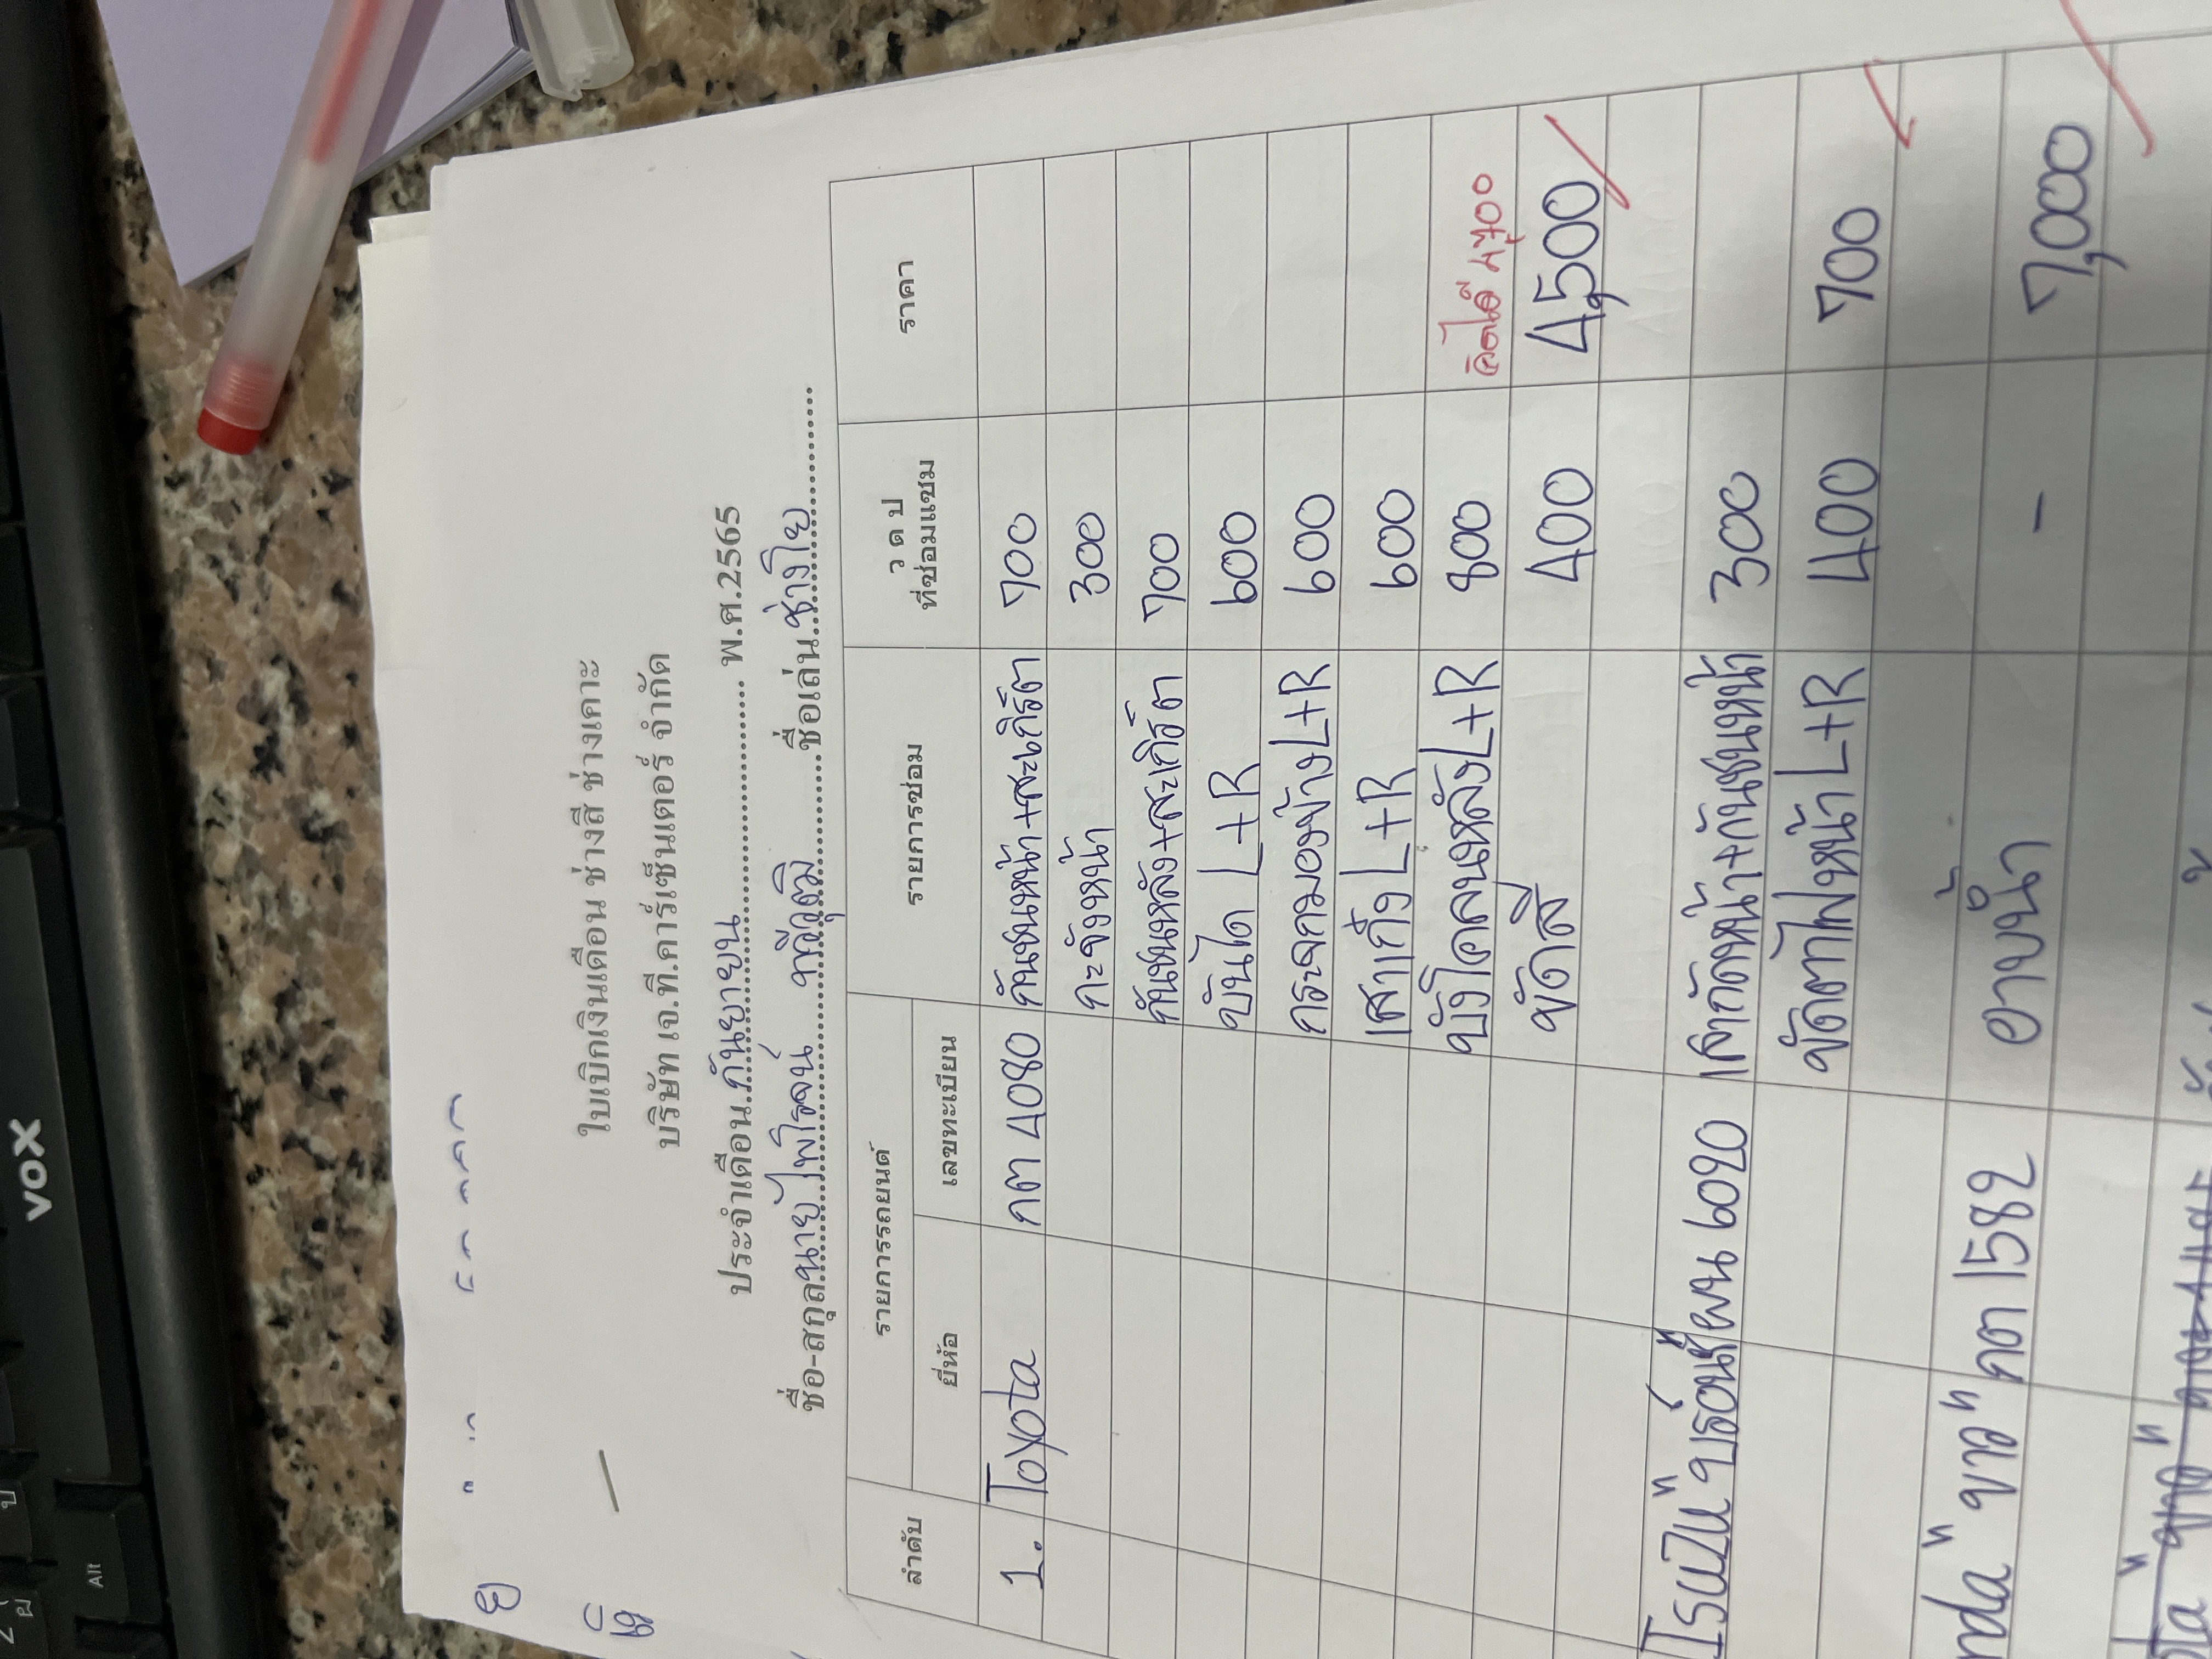 vox
Alt
ใบเบิกเงินเดือน ช่างสี ช่างเคาะ
บริษัท เจ.ที.คาร์เซ็นเตอร์ จำกัด
ประจำเดือน กันยายน พ.ศ.2565
ชื่อ-สกุล นายไพโรจน์ ชื่อเล่น ช่างโย
ลำดับ รายการรถยนต์ รายการซ่อม ว ด ป ที่ซ่อมแซม ราคา
ยี่ห้อ เลขทะเบียน
1. Toyota กต 4080 กันชนหน้า+สะเกิร์ต 700
กะจังหน้า 300
กันชนหลัง+สะเกิร์ต 700
บันได L+R 600
กระจกมองข้าง L+R 600
เสาเก๋ง L+R 600
บังโคลนหลัง L+R 800 คิดได้ 4,700
ขัดสี 400 4,500
6020 เก็บกันชนหน้า 300
ขัดตาไฟหน้า L+R 400 700
"ขาว" กต 1582 อาบน้ำ - 7,000